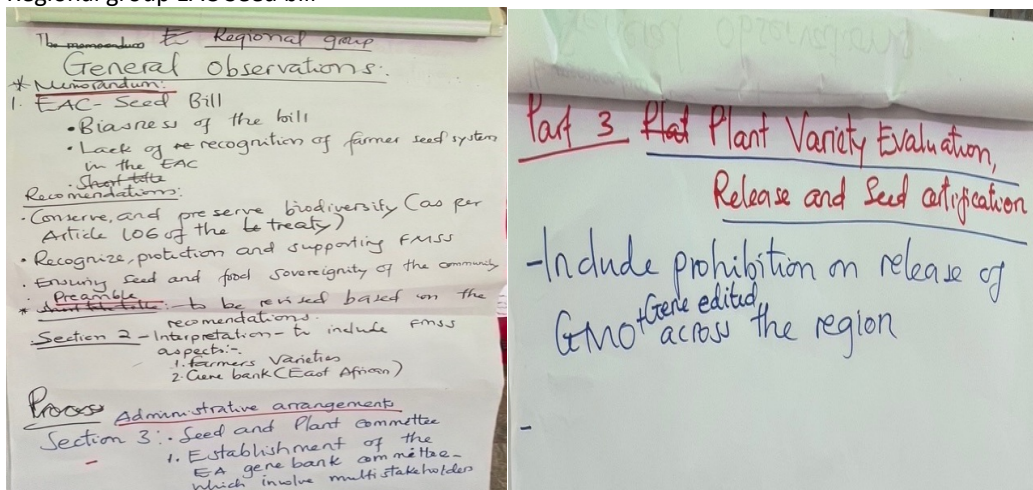 Regional group EAC Seed bill
The memorandum Regional group
General Observations:
* Memorandum:
1. EAC- Seed Bill
• Biasness of the bill
• Lack of re recognition of farmer seed system
in the EAC
• Short title
Recomendations:
• Conserve, and preserve biodiversity (as per
Article 106 of the treaty)
• Recognize, protection and supporting FMSS
• Ensuring Seed and food Sovereignity of the community
Preamble
* Short title: to be revised based on the
recomendations.
Section 2 - Interpretation - to include FMSS
aspects:-
1. farmers Varieties
2. Gene bank (East African)
Process Administrative arrangements
Section 3: • Seed and Plant Committee
1. Establishment of the
EA gene bank committee-
which involve multistakeholders
Part 3 Plat Plant Variety Evaluation,
Release and Seed certification
- Include prohibition on release of
+Gene edited
GMO across the region
-